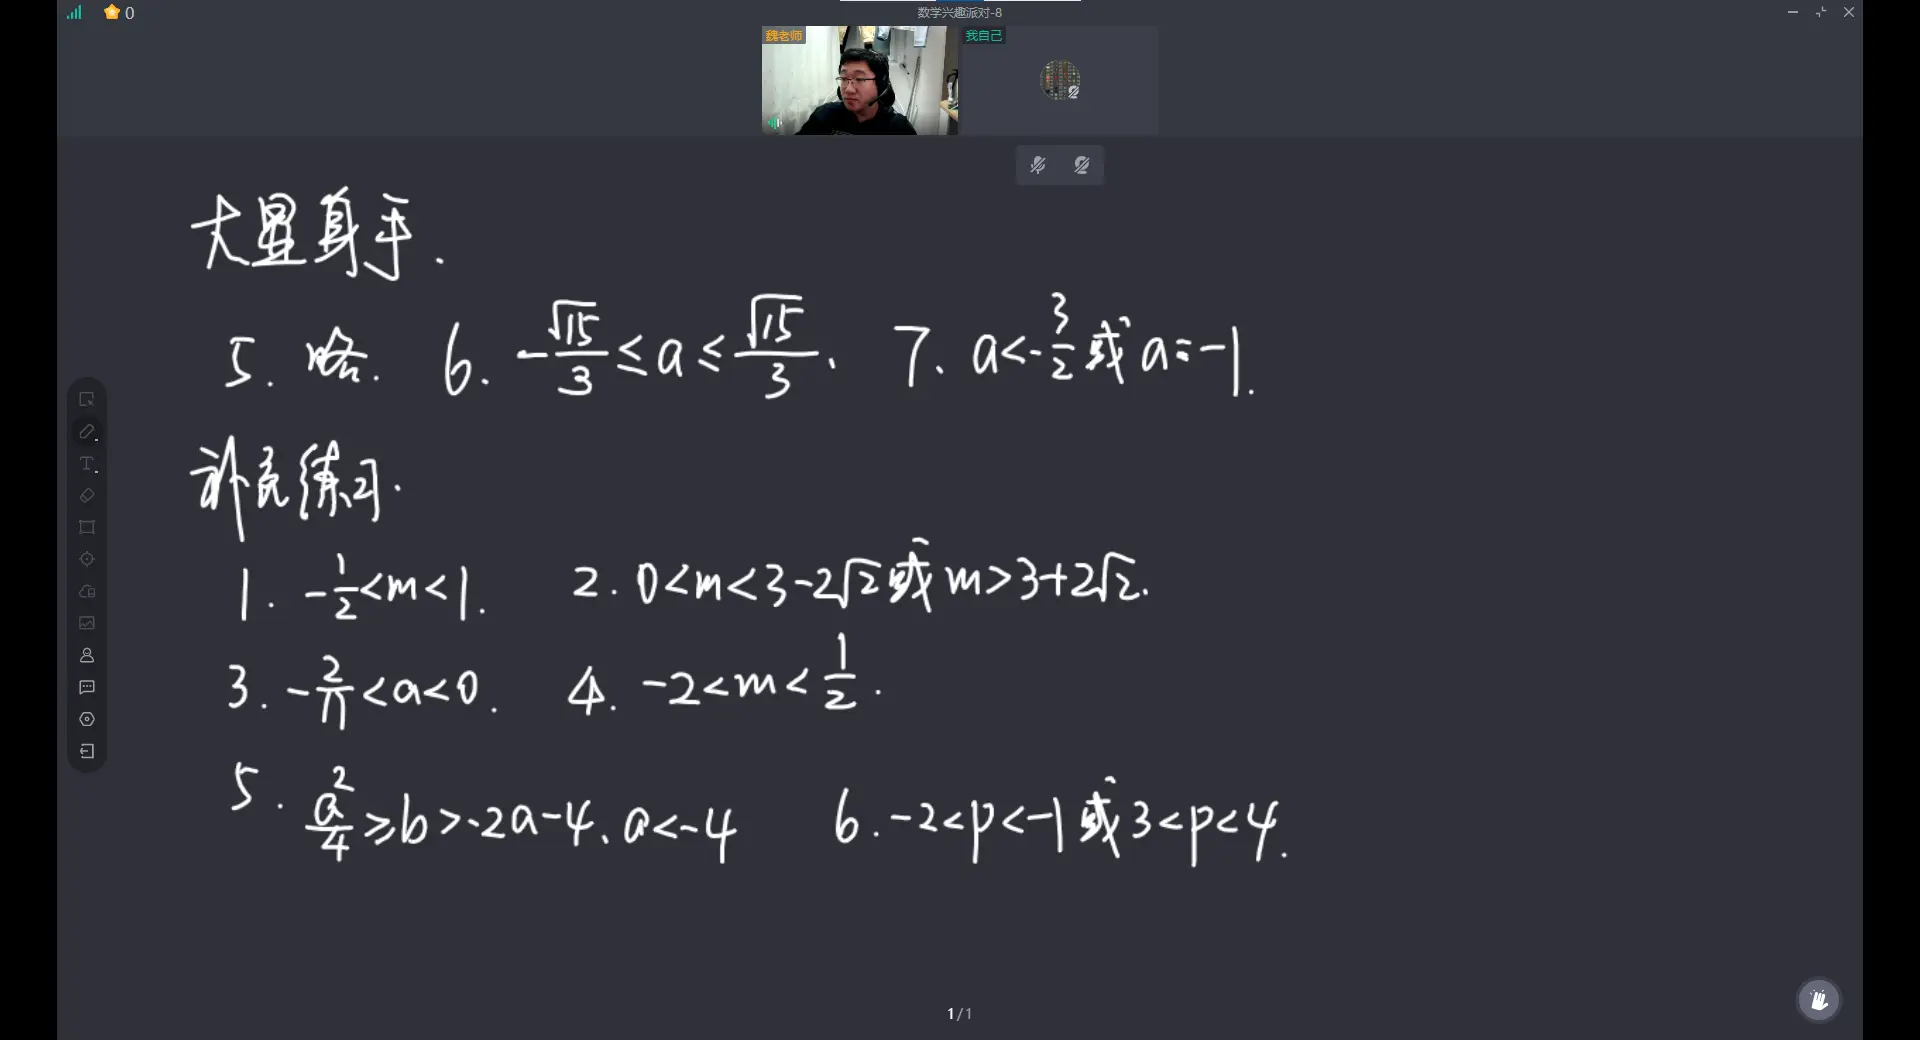 0
数学兴趣派对-8
魏老师
我自己
大显身手.
5. 略. 6. -√15/3 ≤ a ≤ √15/3、 7、a<-3/2 或 a=-1.
补充练习.
1. -1/2<m<1. 2. 0<m<3-2√2 或 m>3+2√2.
3. -2/11<a<0. 4. -2<m<1/2.
5. a²/4 ≥ b > -2a-4、a<-4 6. -2<p<-1 或 3<p<4.
1/1